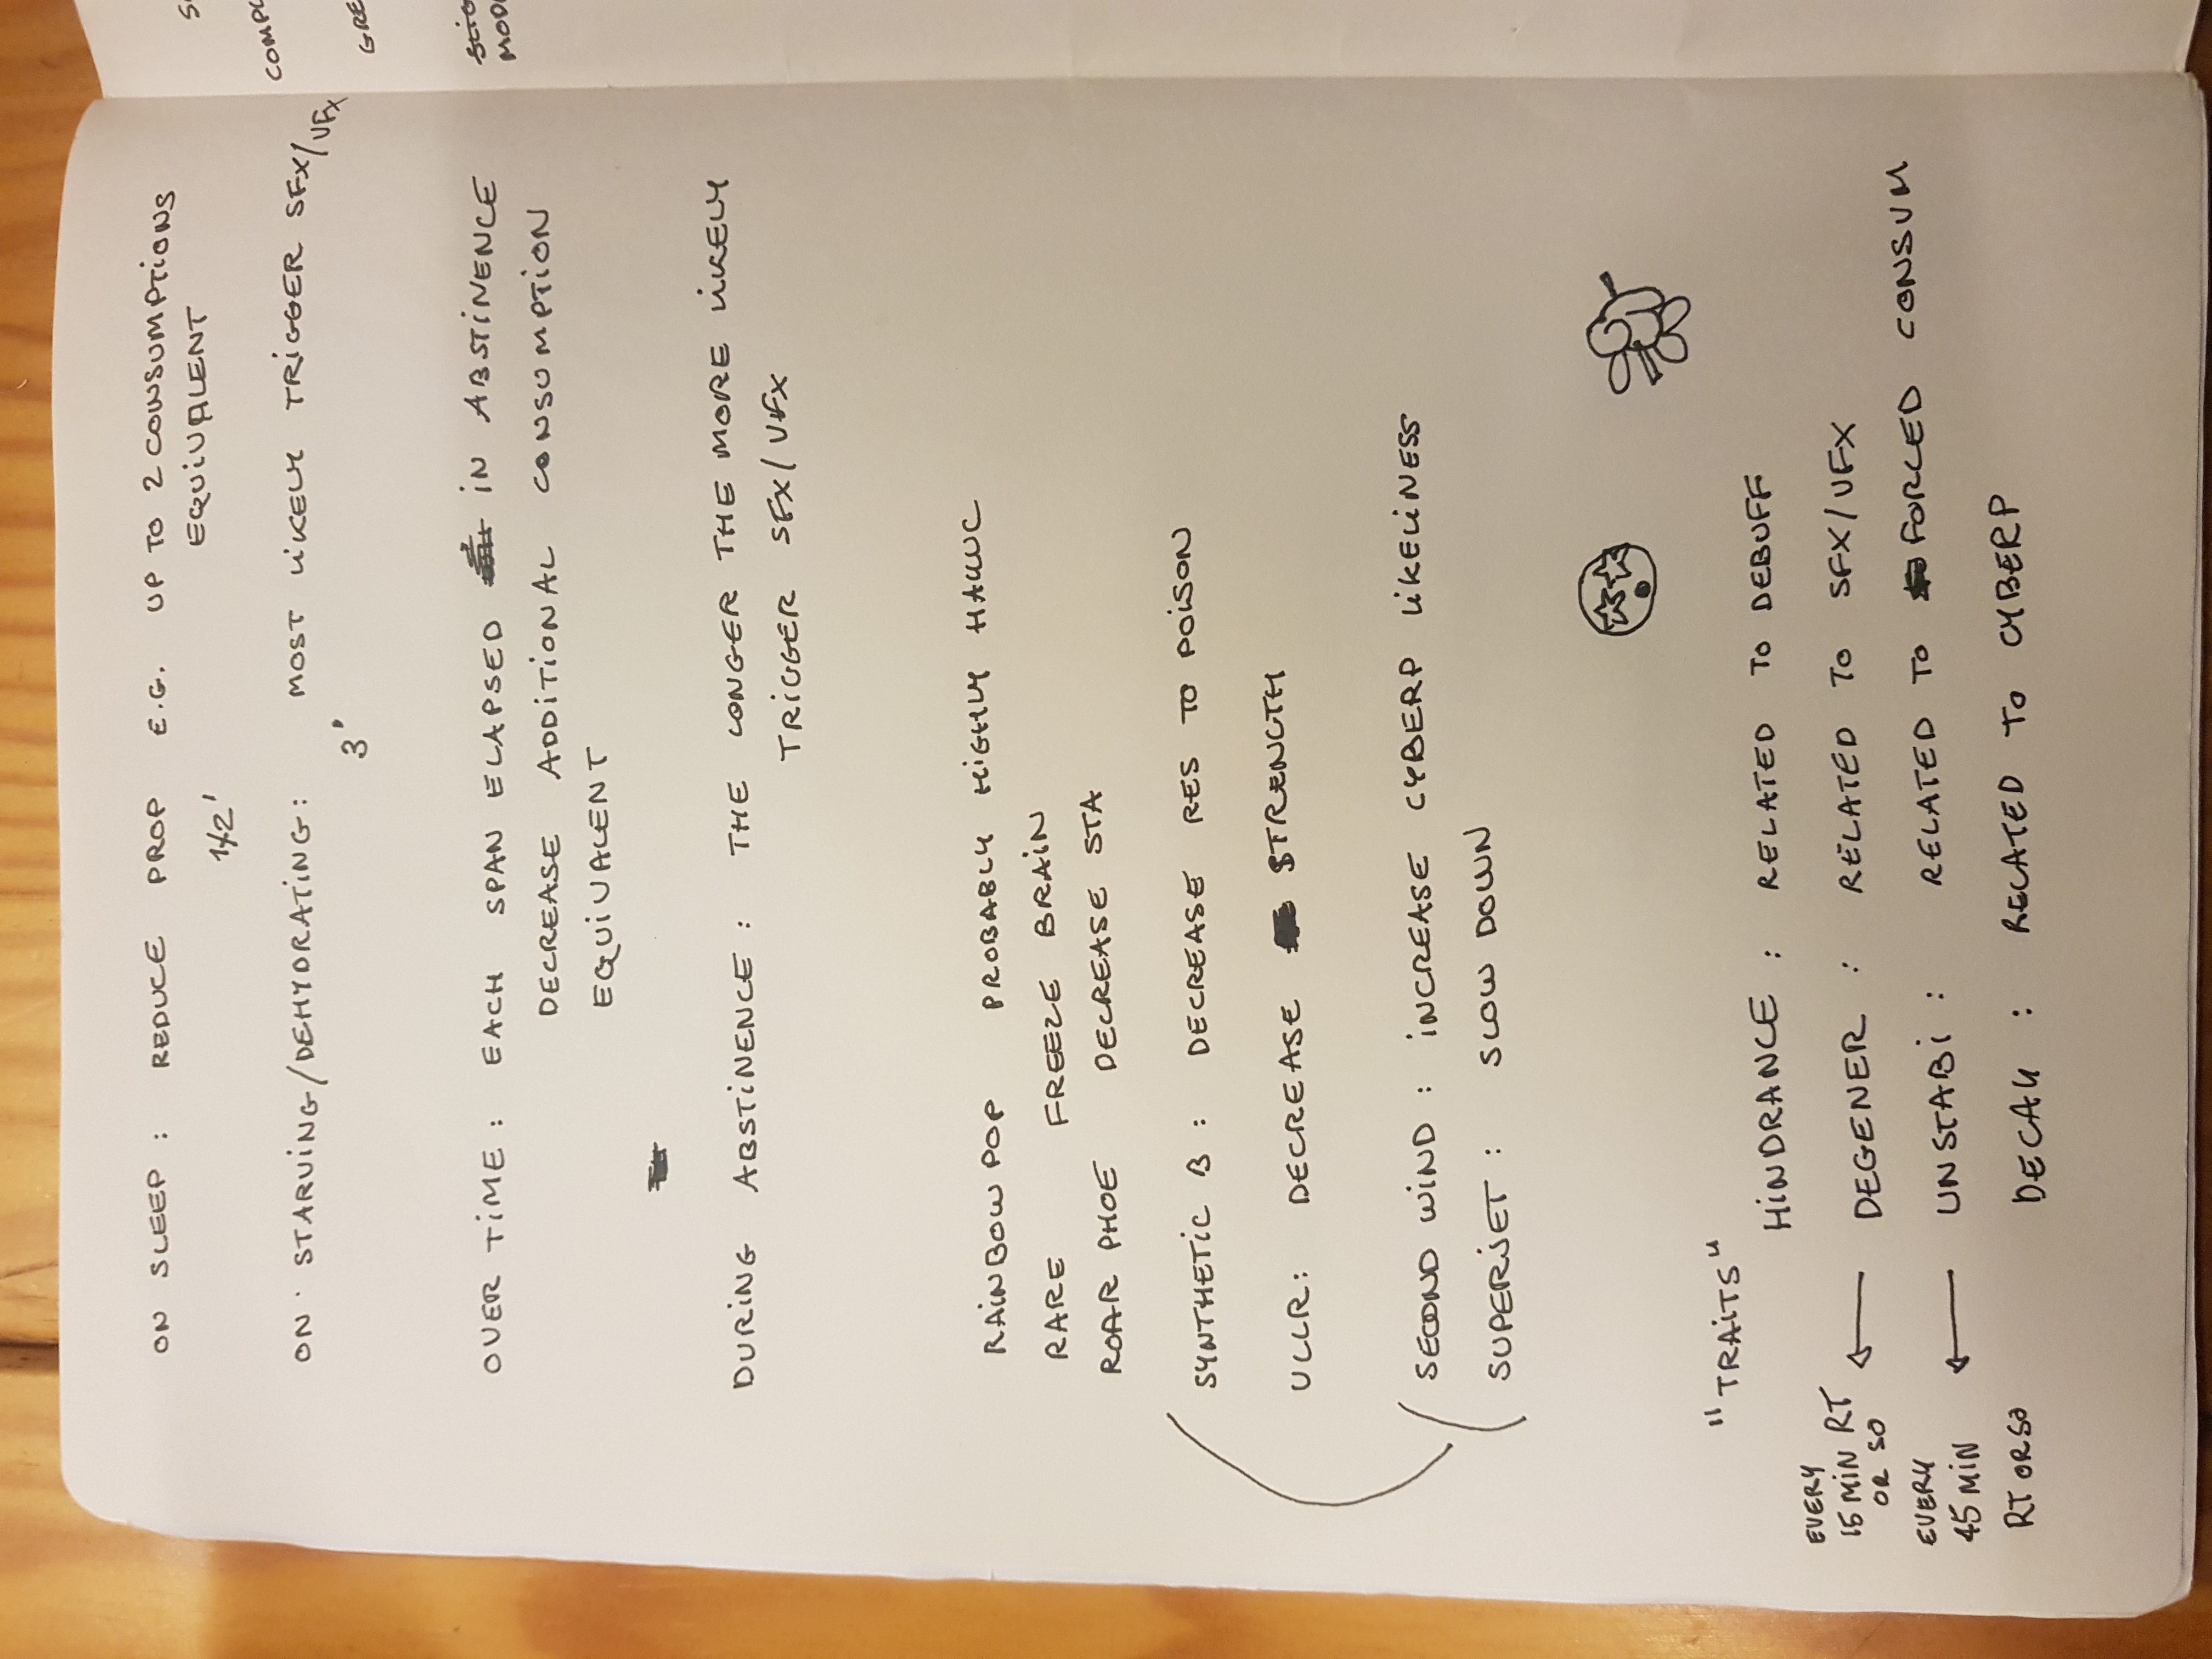 ON SLEEP : REDUCE PROP E.G. UP TO 2 CONSUMPTIONS
EQUIVALENT
1/2'
ON STARVING/DEHYDRATING : MOST LIKELY TRIGGER SFX/VFX
3'
OVER TIME : EACH SPAN ELAPSED IN ABSTINENCE
DECREASE ADDITIONAL CONSUMPTION
EQUIVALENT
DURING ABSTINENCE : THE LONGER THE MORE LIKELY
TRIGGER SFX/VFX
RAINBOW POP PROBABLY HIGHLY HALLUC
RARE FREEZE BRAIN
ROAR PHOE DECREASE STA
SYNTHETIC B : DECREASE RES TO POISON
ULLR : DECREASE STRENGTH
SECOND WIND : INCREASE CYBERP LIKELINESS
SUPERJET : SLOW DOWN
"TRAITS"
HINDRANCE : RELATED TO DEBUFF
EVERY
15 MIN RT
OR SO
DEGENER : RELATED TO SFX/VFX
EVERY
45 MIN
RT OR SO
UNSTABI : RELATED TO FORCED CONSUM
DECAY : RELATED TO CYBERP
COMPL
GRE
MOD